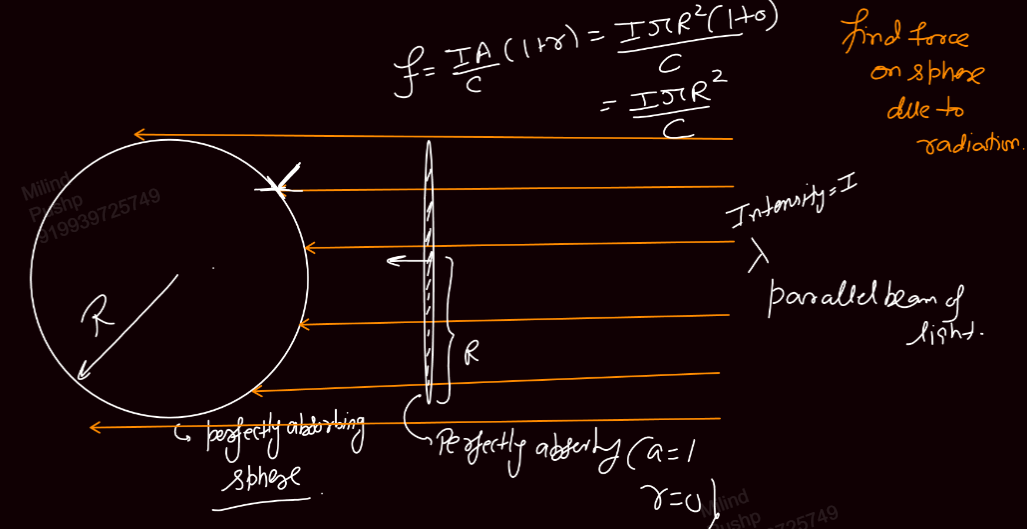 f = IA/C (1+r) = IπR²(1+0)/C
= IπR²/C
find force
on sphere
due to
radiation.
Milind
Pushp
919939725749
Intensity = I
λ
parallel beam of
light.
R
R
perfectly absorbing
sphere
Perfectly absorbing (a=1
r=0)
Milind
Pushp
25749